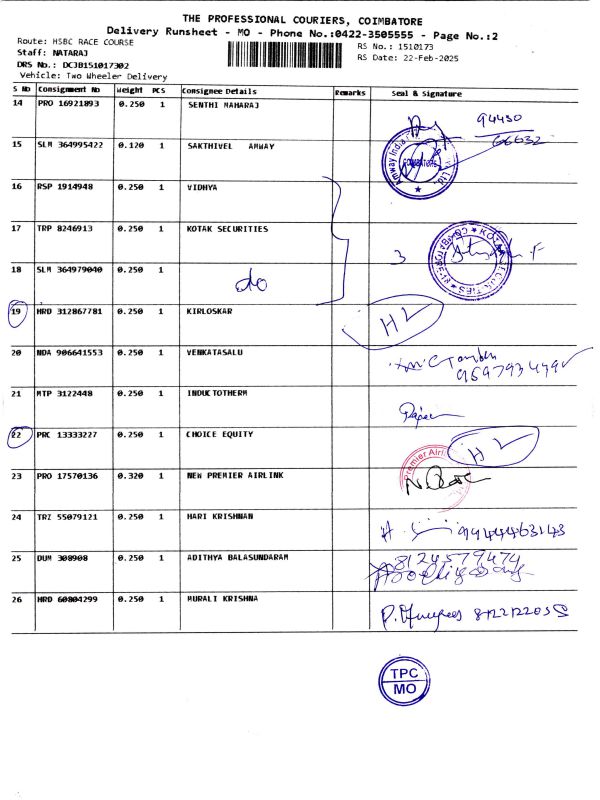 THE PROFESSIONAL COURIERS, COIMBATORE
Delivery Runsheet - MO - Phone No.:0422-3505555 - Page No.:2
Route: HSBC RACE COURSE
RS No.: 1510173
Staff: NATARAJ
RS Date: 22-Feb-2025
DRS No.: DCJB151017302
Vehicle: Two Wheeler Delivery
S No Consignment No Weight PCS Consignee Details Remarks Seal & Signature
14 PRO 16921893 0.250 1 SENTHI MAHARAJ 94430
66632
15 SLM 364995422 0.120 1 SAKTHIVEL AMWAY
Amway India COIMBATORE Ltd.
16 RSP 1914948 0.250 1 VIDHYA
17 TRP 8246913 0.250 1 KOTAK SECURITIES 3
KOTAK SECURITIES COIMBATORE
18 SLM 364979040 0.250 1 do
19 HRD 312867781 0.250 1 KIRLOSKAR HL
20 NDA 906641553 0.250 1 VENKATASALU
21 MTP 3122448 0.250 1 INDUCTOTHERM
22 PRC 13333227 0.250 1 CHOICE EQUITY HL
23 PRO 17570136 0.320 1 NEW PREMIER AIRLINK
Premier Airli
24 TRZ 55079121 0.250 1 HARI KRISHNAN 9444463143
25 DUM 308908 0.250 1 ADITHYA BALASUNDARAM 8124579474
26 HRD 60804299 0.250 1 MURALI KRISHNA
TPC
MO